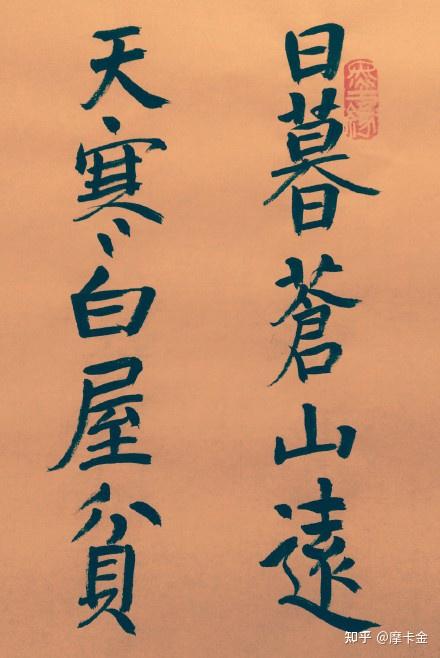 日暮蒼山遠
天寒白屋貧
知乎 @摩卡金